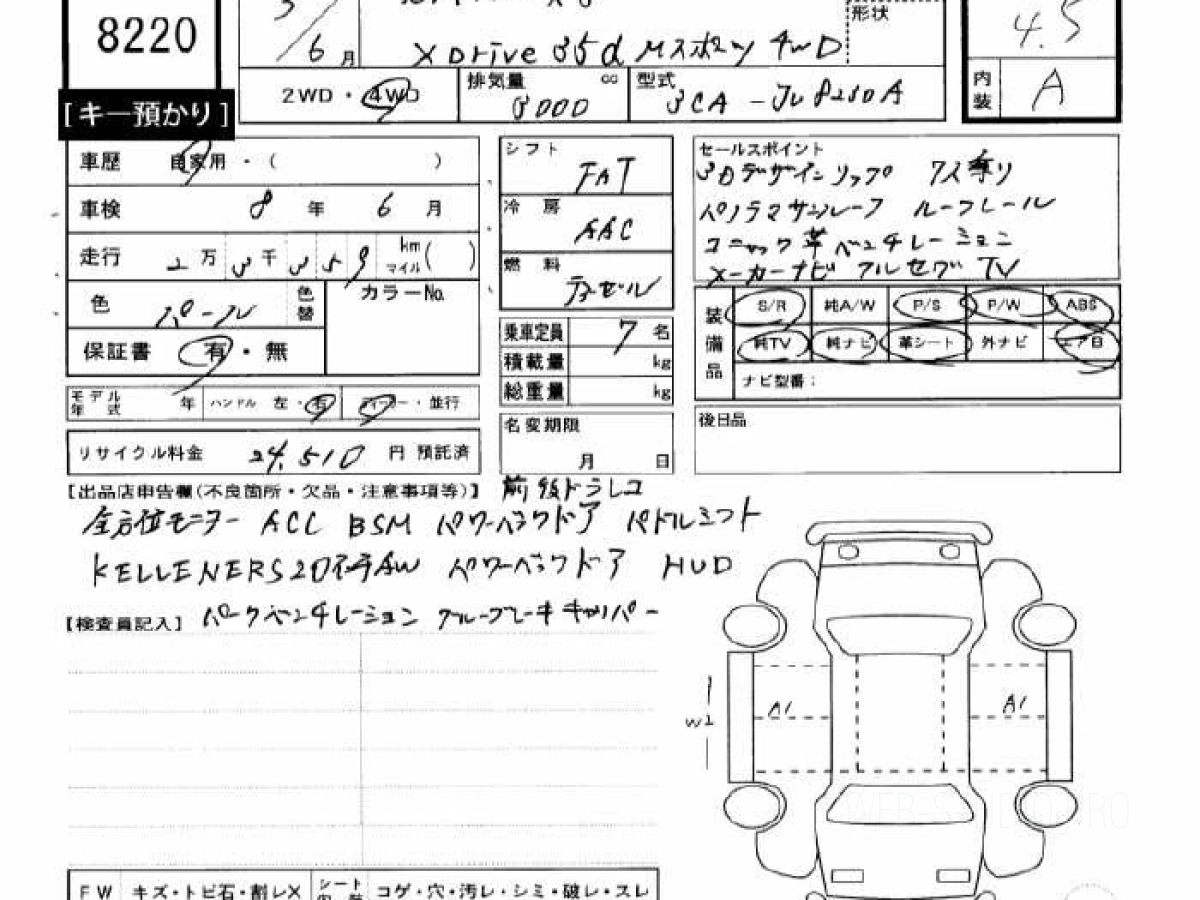 8220
6月
形状
4.5
X Drive 35d Mスポーツ 4WD
2WD・4WD
排気量 cc 3000
型式 3CA-JU8230A
内装 A
[キー預かり]
車歴 自家用・( )
車検 8年 6月
走行 2万3千359 km マイル( )
色 パール 色替
カラーNo.
保証書 有・無
モデル年式 年 ハンドル 左・右 ディーラー・並行
リサイクル料金 24,510円 預託済
シフト FAT
冷房 AAC
燃料 ディーゼル
乗車定員 7名
積載量 kg
総重量 kg
名変期限
月 日
セールスポイント
3Dデザインリップ 7人乗り
パノラマサンルーフ ルーフレール
コニャック革 ベンチレーション
メーカーナビ フルセグTV
装備品
S/R 純A/W P/S P/W ABS
純TV 純ナビ 革シート 外ナビ エアB
ナビ型番:
後日品
【出品店申告欄(不良箇所・欠品・注意事項等)】 前後ドラレコ
全方位モニター ACC BSM パワーバックドア パドルシフト
KELLENERS20インチAW パワーバックドア HUD
【検査員記入】 パークベンチレーション ブルーブレーキキャリパー
A1
A1
W2
FW キズ・トビ石・割レX シート内装 コゲ・穴・汚レ・シミ・破レ・スレ